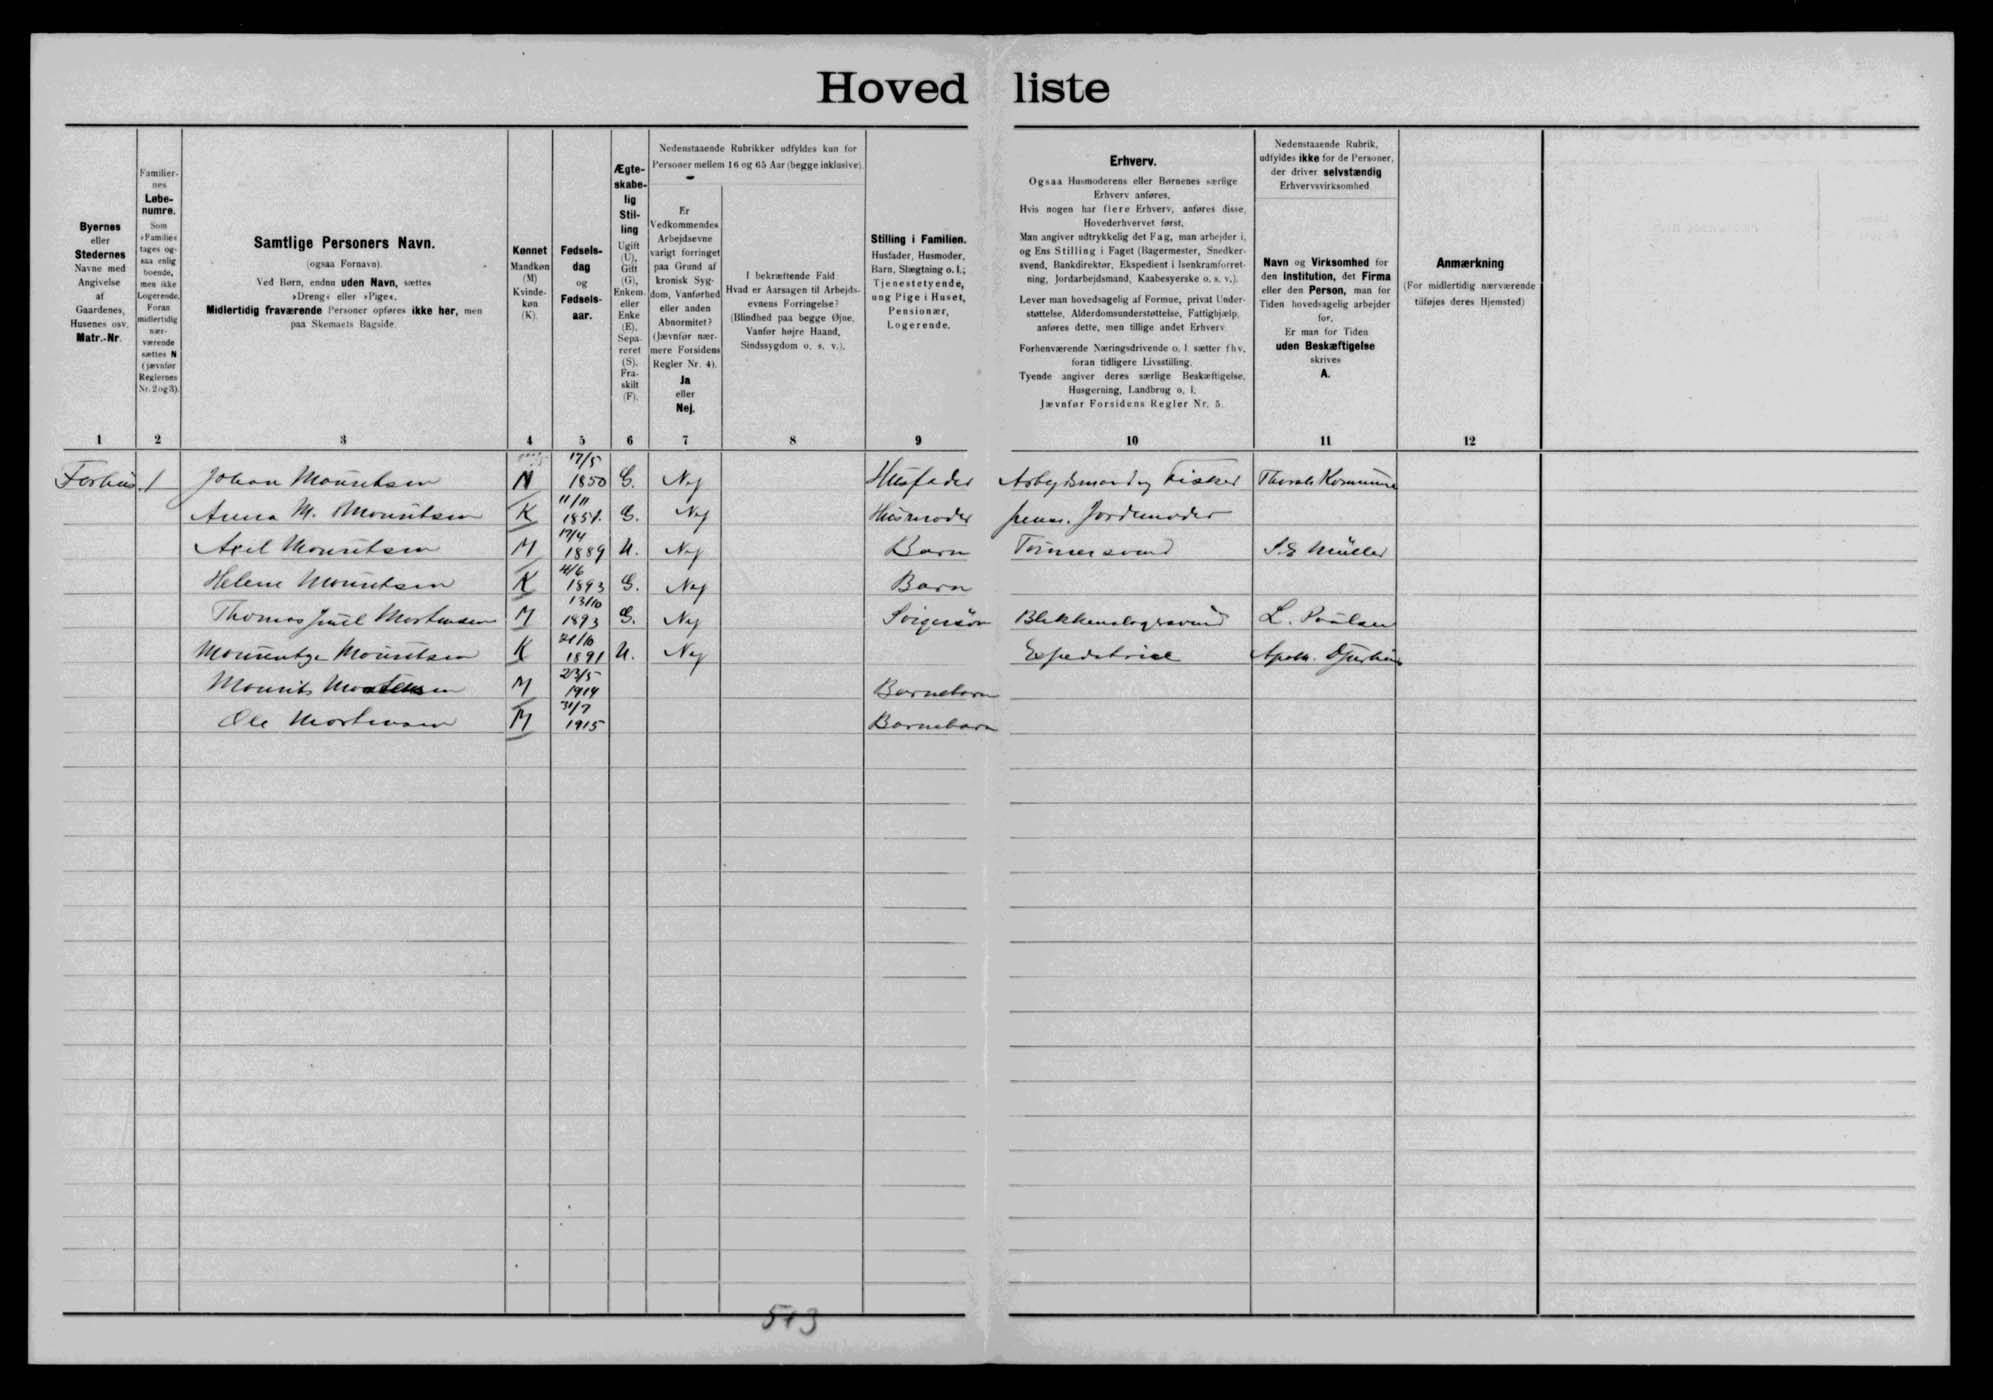 Hovedliste
Byernes
eller
Stedernes
Navne med
Angivelse
af
Gaardenes,
Husenes osv.
Matr.-Nr.
Familier-
nes
Løbe-
numre.
Som
»Familie«
tages og-
saa enlig
boende,
men ikke
Logerende.
Foran
midlertidig
nær-
værende
sættes N
(jævnfør
Reglernes
Nr. 2 og 3).
Samtlige Personers Navn.
(ogsaa Fornavn).
Ved Børn, endnu uden Navn, sættes
»Dreng« eller »Pige«.
Midlertidig fraværende Personer opføres ikke her, men
paa Skemaets Bagside.
Kønnet
Mandkøn
(M)
Kvinde-
køn
(K).
Fødsels-
dag
og
Fødsels-
aar.
Ægte-
skabe-
lig
Stil-
ling
Ugift
(U),
Gift
(G),
Enkem.
eller
Enke
(E).
Sepa-
reret
(S).
Fra-
skilt
(F).
Nedenstaaende Rubrikker udfyldes kun for
Personer mellem 16 og 65 Aar (begge inklusive).
Er
Vedkommendes
Arbejdsevne
varigt forringet
paa Grund af
kronisk Syg-
dom, Vanførhed
eller anden
Abnormitet?
(Jævnfør nær-
mere Forsidens
Regler Nr. 4).
Ja
eller
Nej.
I bekræftende Fald:
Hvad er Aarsagen til Arbejds-
evnens Forringelse?
(Blindhed paa begge Øjne,
Vanfør højre Haand,
Sindssygdom o. s. v.).
Stilling i Familien.
Husfader, Husmoder,
Barn, Slægtning o. l.;
Tjenestetyende,
ung Pige i Huset,
Pensionær,
Logerende.
Erhverv.
Ogsaa Husmoderens eller Børnenes særlige
Erhverv anføres.
Hvis nogen har flere Erhverv, anføres disse,
Hovederhvervet først.
Man angiver udtrykkelig det Fag, man arbejder i,
og Ens Stilling i Faget (Bagermester, Snedker-
svend, Bankdirektør, Ekspedient i Isenkramforret-
ning, Jordarbejdsmand, Kaabesyerske o. s. v.).
Lever man hovedsagelig af Formue, privat Under-
støttelse, Alderdomsunderstøttelse, Fattighjælp,
anføres dette, men tillige andet Erhverv.
Forhenværende Næringsdrivende o. l. sætter fhv.
foran tidligere Livsstilling.
Tyende angiver deres særlige Beskæftigelse,
Husgerning, Landbrug o. l.
Jævnfør Forsidens Regler Nr. 5.
Nedenstaaende Rubrik,
udfyldes ikke for de Personer,
der driver selvstændig
Erhvervsvirksomhed.
Navn og Virksomhed for
den Institution, det Firma
eller den Person, man for
Tiden hovedsagelig arbejder
for.
Er man for Tiden
uden Beskæftigelse
skrives
A.
Anmærkning
(For midlertidig nærværende
tilføjes deres Hjemsted)
1 2 3 4 5 6 7 8 9 10 11 12
Forhus 1 Johan Mouritsen M 17/5 1850 G. Nej Husfader Arbejdsmand og Fisker Kommune
Anna M. Mouritsen K 11/11 1851. G. Nej Husmoder pens. Jordemoder
Axel Mouritsen M 17/4 1889 U. Nej Barn Tømmersvend Müller
Helene Mouritsen K 4/6 1893 G. Nej Barn
Thomas Juul Mortensen M 13/10 1893 G. Nej Svigersøn Blikkenslagersvend L. Poulsen
Mouritsen K 21/10 1891 U. Nej Expeditrice Apoth.
Mourits Mortensen M 23/5 1914 Barnebarn
Ole Mortensen M 31/7 1915 Barnebarn
513